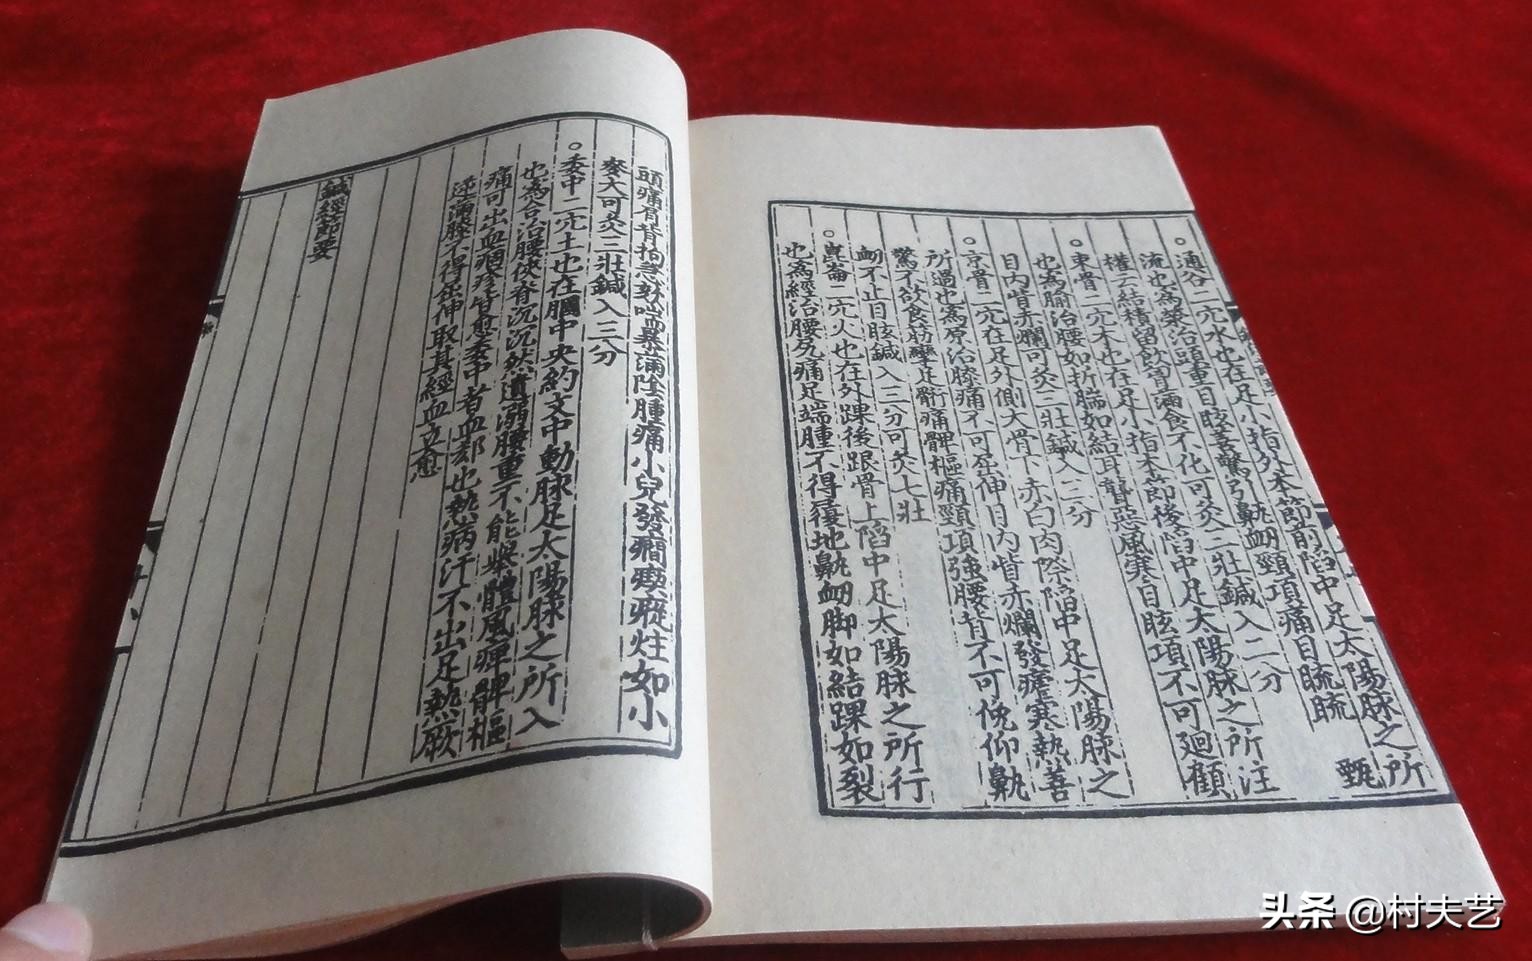 ○通谷二穴水也在足小指外本節前陷中足太陽脉之所
流也為滎治頭重目眩善驚引鼽衂頸項痛目䀮䀮甄
權云結積留飲胷滿食不化可灸三壯鍼入二分
○束骨二穴木也在足小指本節後陷中足太陽脉之所注
也為腧治腰如折腨如結耳聾惡風寒目眩項不可廻顧
目内眥赤爛可灸三壯鍼入三分
○京骨二穴在足外側大骨下赤白肉際陷中足太陽脉之
所過也為原治膝痛不可屈伸目内眥赤爛發瘧寒熱善
驚不欲食筋攣足䯒痛髀樞痛頸項強腰背不可俛仰鼽
衂不止目眩鍼入三分可灸七壯
○崑崙二穴火也在外踝後跟骨上陷中足太陽脉之所行
也為經治腰尻痛足腨腫不得履地鼽衂脚如結踝如裂
頭痛肩背拘急欬喘暴滿陰腫痛小兒發癎瘈瘲炷如小
麥大可灸三壯鍼入三分
○委中二穴土也在膕中央約文中動脉足太陽脉之所入
也為合治腰俠脊沉沉然遺溺腰重不能舉體風痺髀樞
痛可出血痼疹皆愈委中者血郄也熱病汗不出足熱厥
逆滿膝不得屈伸取其經血立愈
鍼經節要
头条 @村夫艺